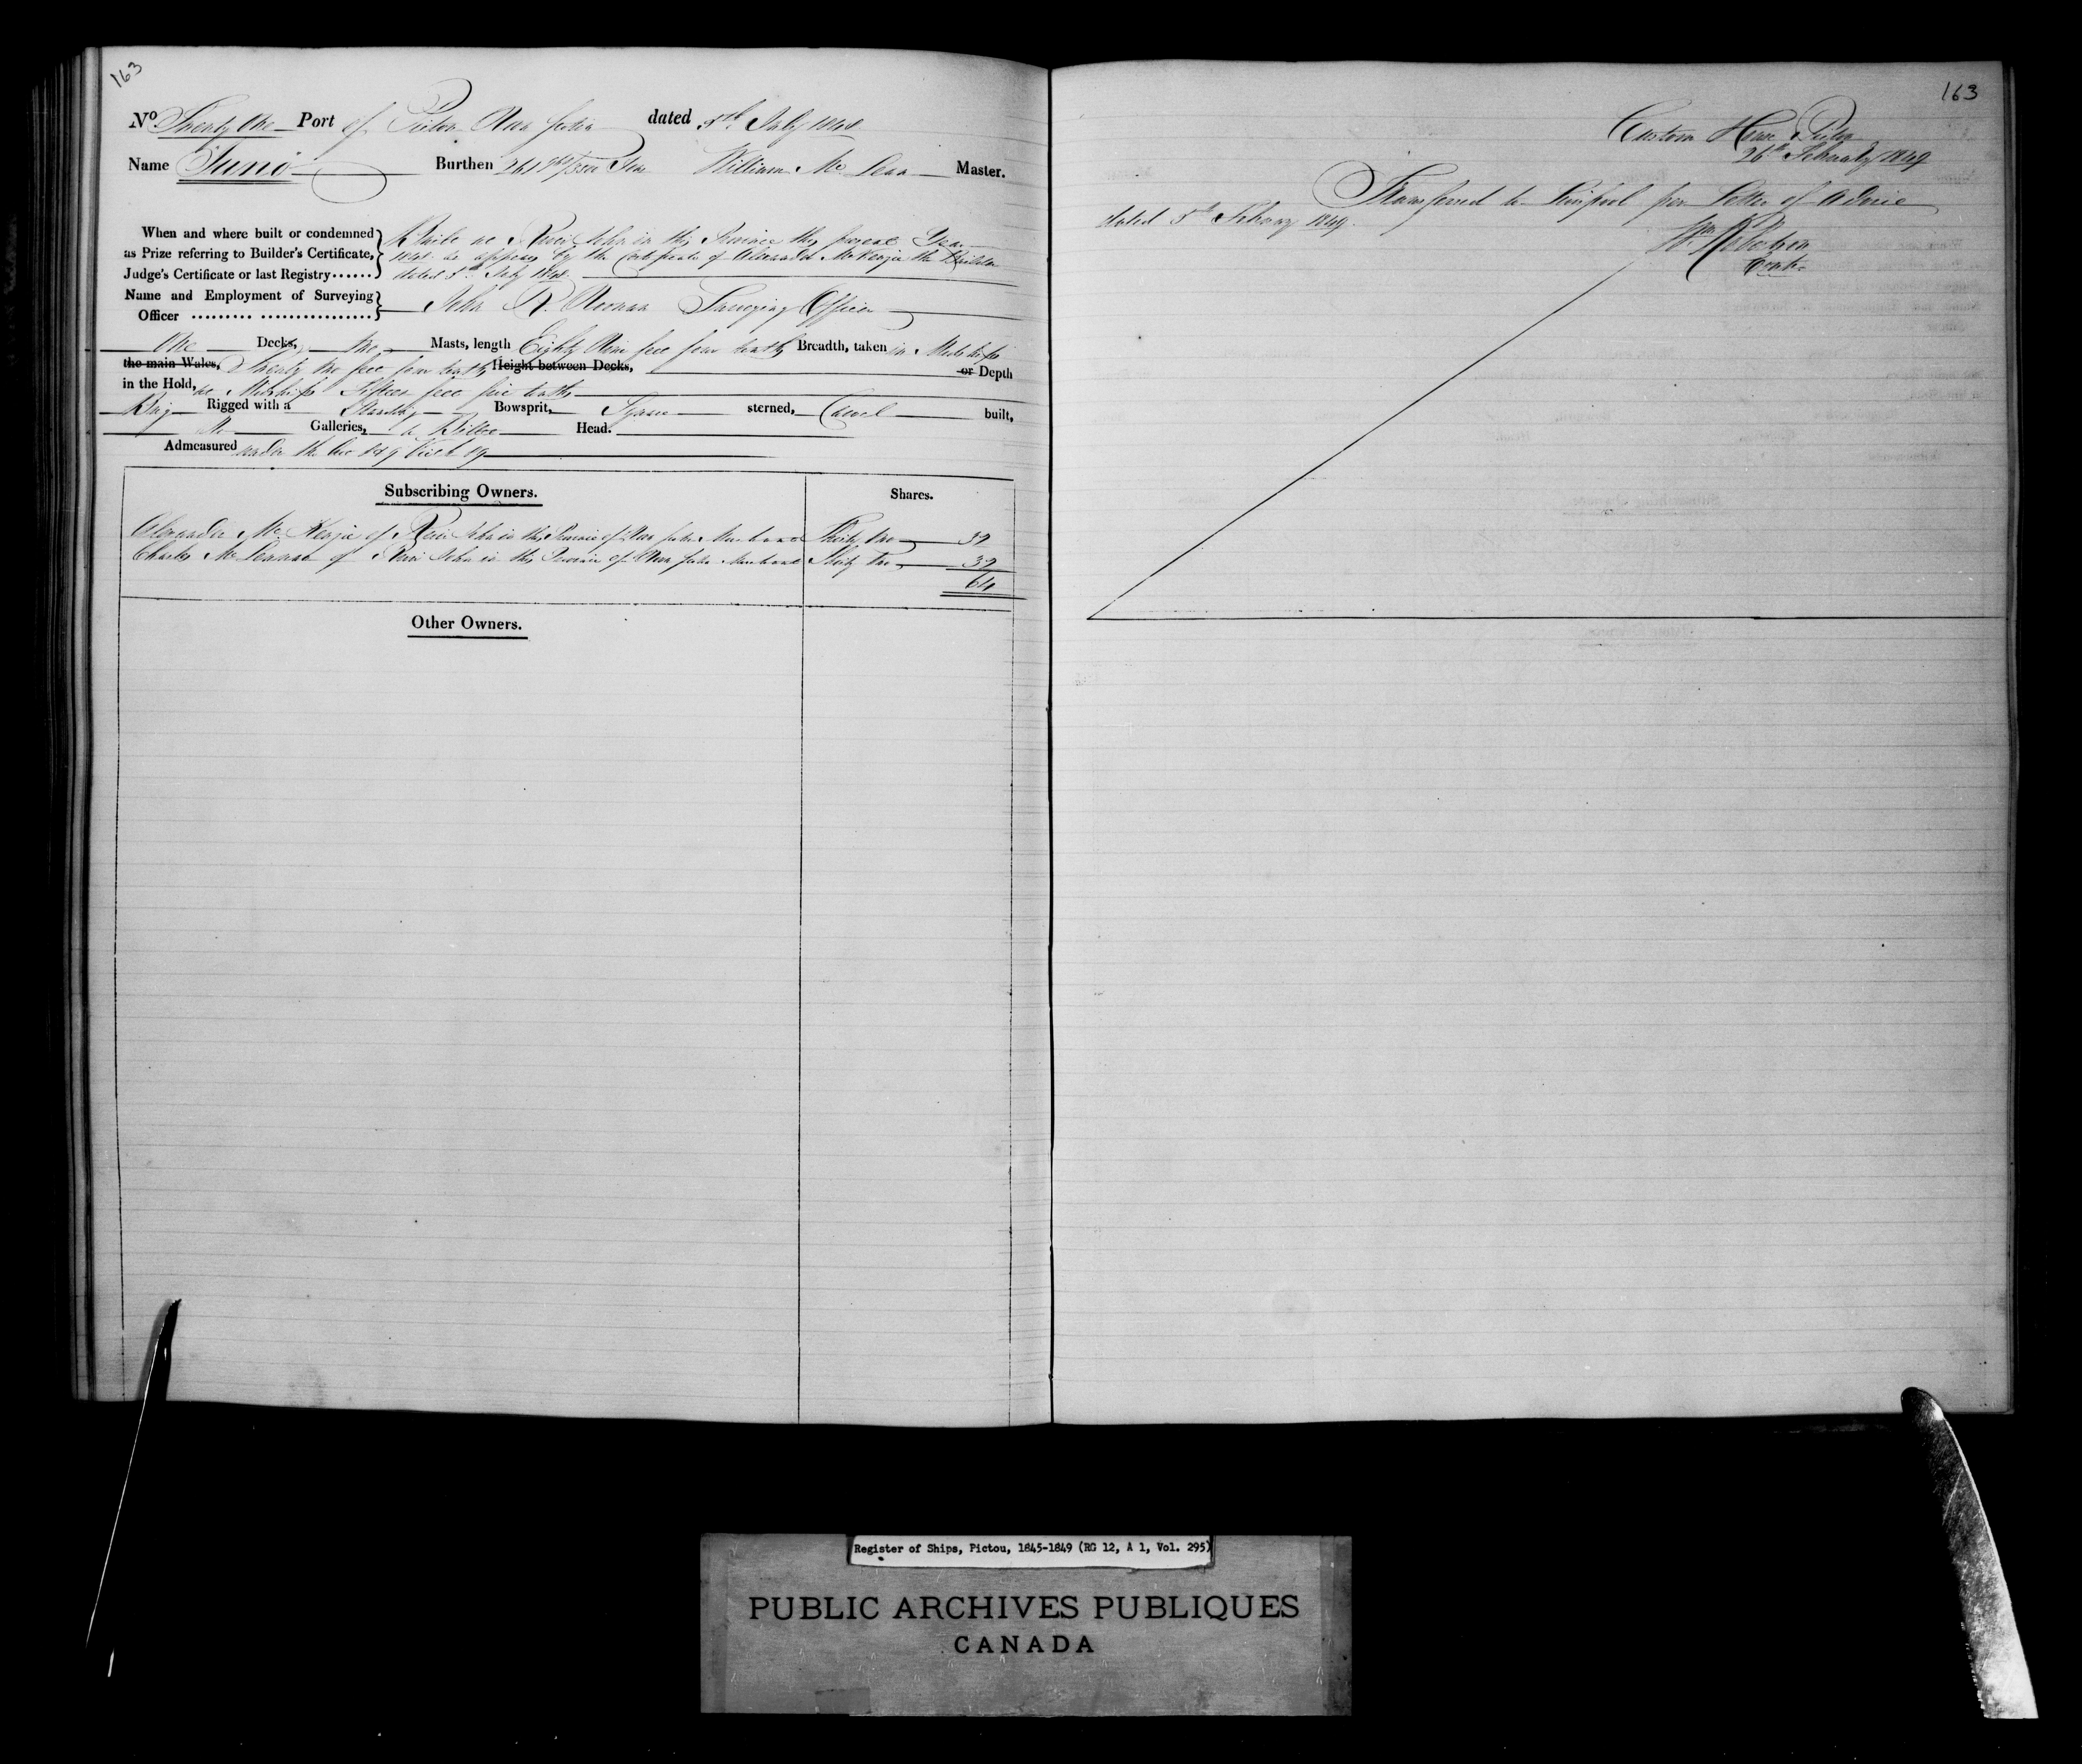 163
No Twenty One Port of Pictou Nova Scotia dated 5th July 1848
Name Juno Burthen 261 Tons William Mc Lean Master.
When and where built or condemned
as Prize referring to Builder's Certificate,
Judge's Certificate or last Registry......
Built at River John in this Province this present Year
1848 as appears by the Certificate of Alexander McKenzie the Builder
dated 3d July 1848
Name and Employment of Surveying
Officer ......... ................
John R. Noonan Surveying Officer
One Decks, two Masts, length Eighty Nine feet four tenths Breadth, taken in Midships
the main Wales, Twenty two feet four tenths Height between Decks, or Depth
in the Hold, at Midships Fifteen feet five tenths
Brig Rigged with a Standing Bowsprit, Square sterned, Carvel built,
No Galleries, a Billet Head.
Admeasured under the Act 8 & 9 Vict 89
Subscribing Owners. Shares.
Alexander Mc Kenzie of River John in the Province of Nova Scotia Merchant Thirty two 32
Charles Mc Lennan of River John in the Province of Nova Scotia Merchant Thirty two 32
64
Other Owners.
163
Custom House Pictou
26th February 1849
Transferred to Liverpool per Letter of Advice
dated 5th February 1849.
Wm Robertson
Contr
Register of Ships, Pictou, 1845-1849 (RG 12, A 1, Vol. 295)
PUBLIC ARCHIVES PUBLIQUES
CANADA